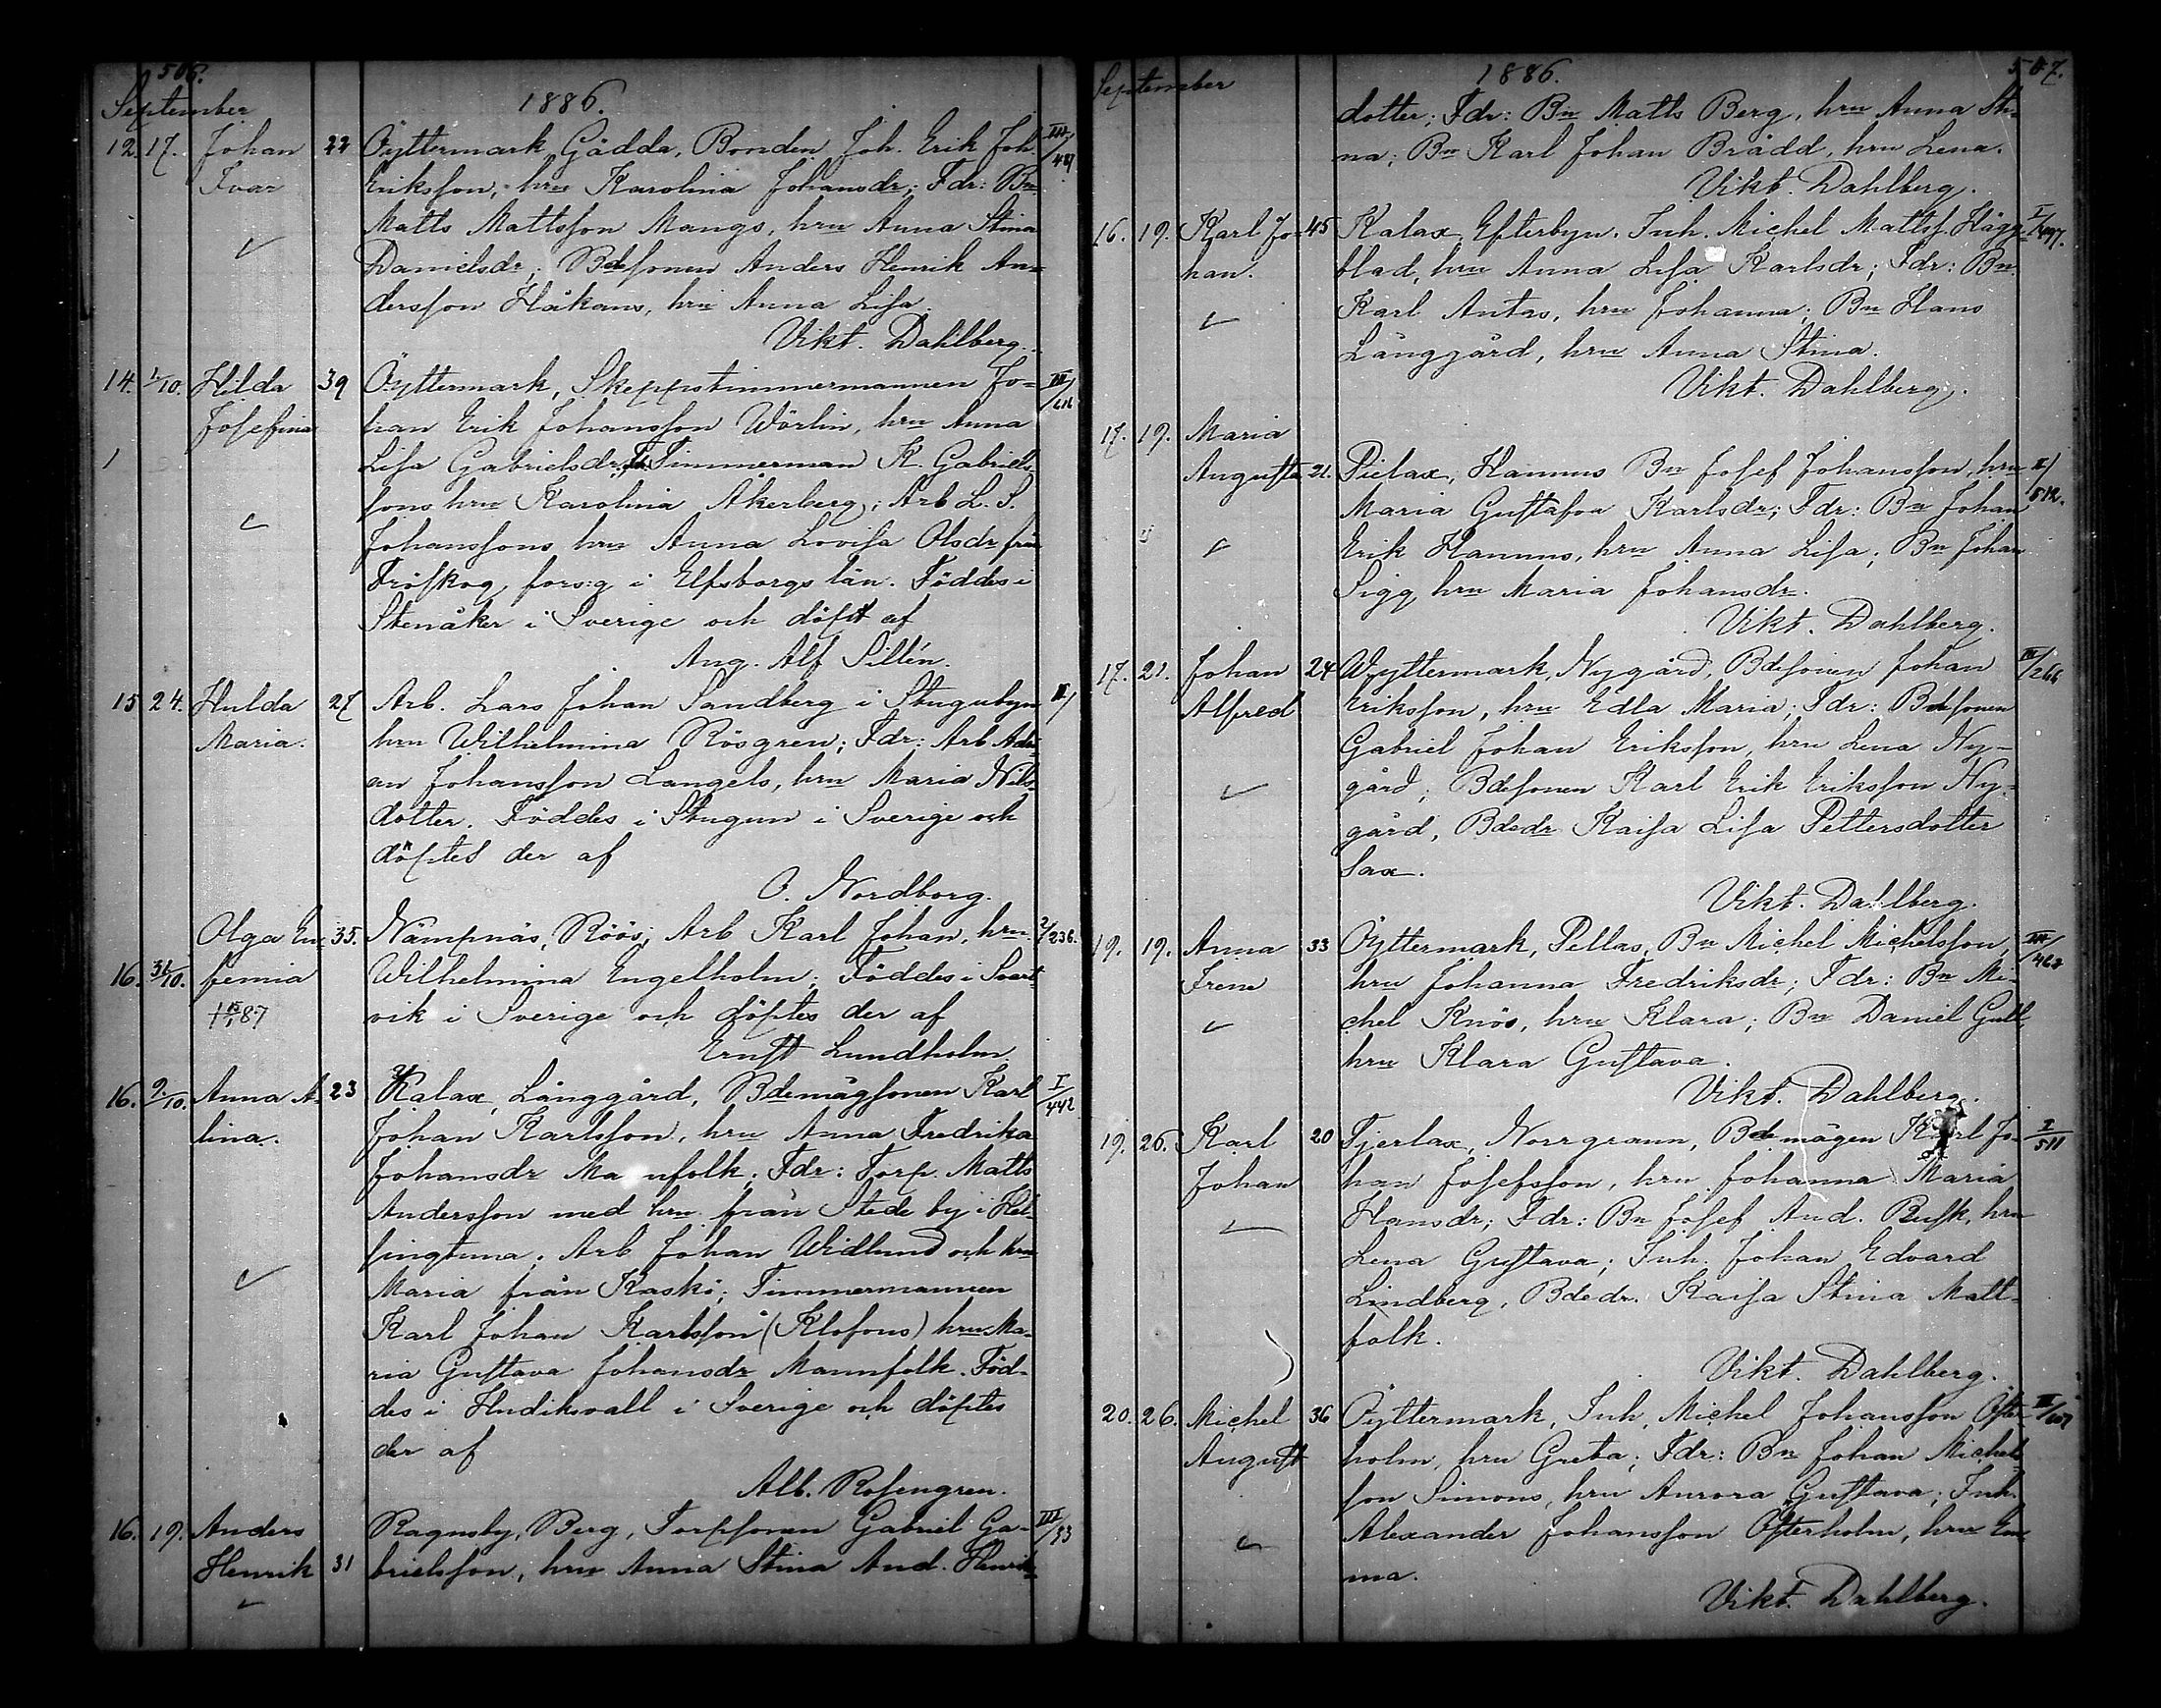 506.
September
1886.
12. 17. Johan 22 Öyttermark Gädda, Bonden Joh. Erik Joh. III/
Ivar Eriksson, hru Karolina Johansdr; Fdr: Bn
Matts Mattsson Mangs, hru Anna Stina
Danielsdr; Bdesonen Anders Henrik An-
dersson Håkans, hru Anna Lisa.
Vikt. Dahlberg.
14. 1/10. Hilda 39 Öyttermark, Skeppstimmermannen Jo- III/616
Josefina han Erik Johansson Wörlin, hru Anna
1 Lisa Gabrielsdr; Timmerman K. Gabriels-
sons hru Karolina Åkerberg; Arb L. S.
Johanssons hru Anna Lovisa Olsdr från
Fröskog, fors:g i Elfsborgs län. Föddes i
Stenåker i Sverige och döpt af
Aug. Alf Sillén.
15 24. Hulda 27 Arb. Lars Johan Sandberg i Stugubyn II/
Maria. hru Wilhelmina Rösgren; Fdr: Arb Adri
an Johansson Langels, hru Maria Nils-
dotter. Föddes i Stugun i Sverige och
döptes der af
O. Nordborg.
Olga Eu- 35. Nämpnäs, Röös; Arb Karl Johan, hru 2/236.
16. 31/10. femia Wilhelmina Engelholm; Föddes i Svart-
87 vik i Sverige och döptes der af
Ernst Lundholm
16. 9./10. Anna A- 23 Kalax, Långgård, Bdemågsonen Karl I/442
lina. Johan Karlsson, hru Anna Fredrika
Johansdr Mannfolk; Fdr: Torp. Matts
Andersson med hru från Stede by i Hel-
singtuna; Arb Johan Widlund och hru
Maria från Kaskö; Timmermannen
Karl Johan Karlsson (Klofons) hru Ma-
ria Gustava Johansdr Mannfolk. Föd-
des i Hudiksvall i Sverige och döptes
der af
Alb. Rosengren.
16. 19. Anders Ragnsby, Berg, Torpsonen Gabriel Ga- III/53
Henrik 31 brielsson, hru Anna Stina And. Henriks-
September
1886.
507.
dotter; Fdr: Bn Matts Berg, hru Anna Sti-
na; Bn Karl Johan Brädd, hru Lena.
Vikt. Dahlberg.
16. 19. Karl Jo- 45 Kalax, Efterbyn. Inh. Michel Mattss. Hägg- I/497.
han. blad, hru Anna Lisa Karlsdr; Fdr: Bn
Karl Antas, hru Johanna; Bn Hans
Långgård, hru Anna Stina.
Vikt. Dahlberg.
17. 19. Maria
Augusta 21. Pielax, Hannus Bn Josef Johansson, hru II/512.
Maria Gustafva Karlsdr; Fdr: Bn Johan
Erik Hannus, hru Anna Lisa; Bn Johan
Sigg hru Maria Johansdr.
Vikt. Dahlberg.
17. 21. Johan 24 Wyttermark, Nygård, Bdesonen Johan III/266
Alfred Eriksson, hru Edla Maria; Fdr: Bdesonen
Gabriel Johan Eriksson, hru Lena Ny-
gård; Bdesonen Karl Erik Eriksson Ny-
gård, Bdedr Kaisa Lisa Pettersdotter
Sax.
Vikt. Dahlberg.
19. 19. Anna 33 Öyttermark, Pellas, Bn Michel Michelsson, III/463
Irene hru Johanna Fredriksdr; Fdr: Bn Mi-
chel Knös, hru Klara; Bn Daniel Gull,
hru Klara Gustava.
Vikt. Dahlberg.
19. 26. Karl 20 Tjerlax, Norrgrann, Bdemågen Karl Jo- I/511
Johan han Josefsson, hru Johanna Maria
Hansdr; Fdr: Bn Josef And. Rusk, hru
Lena Gustava; Inh. Johan Edvard
Lindberg, Bdedr. Kaisa Stina Matt-
folk.
Vikt. Dahlberg.
20. 26. Michel 36 Öyttermark, Inh. Michel Johansson Öster- III/
August holm, hru Greta; Fdr: Bn Johan Michels-
son Simons, hru Aurora Gustava; Inh.
Alexander Johansson Österholm, hru Em-
ma.
Vikt. Dahlberg.